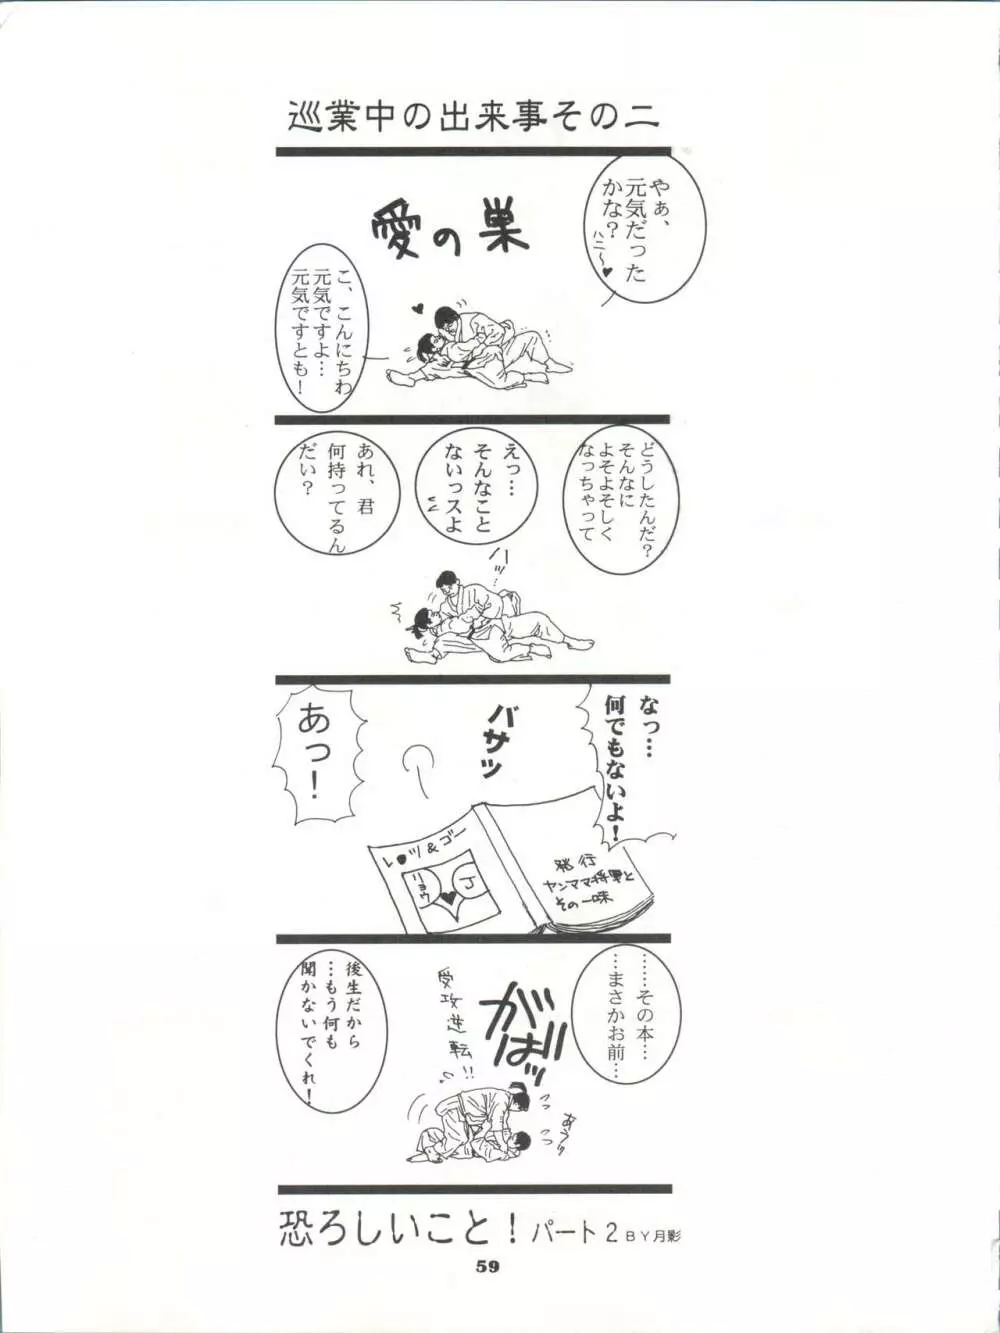 巡業中の出来事その二
やぁ、
元気だった
かな?
ハニ～♥
愛の巣
こ、こんにちわ
元気ですよ…
元気ですとも!
どうしたんだ?
そんなに
よそよそしく
なっちゃって
えっ…
そんなこと
ないっスよ
あれ、君
何持ってるん
だい?
ハッ…
なっ…
何でもないよ!
バサッ
あっ!
レ●ツ&ゴー
リョウ
J
発行
ヤンママ将軍と
その一味
……その本…
…まさかお前…
がばッ
受攻逆転!!
あうっ
後生だから
…もう何も
聞かないでくれ!
恐ろしいこと!パート2 BY月影
59